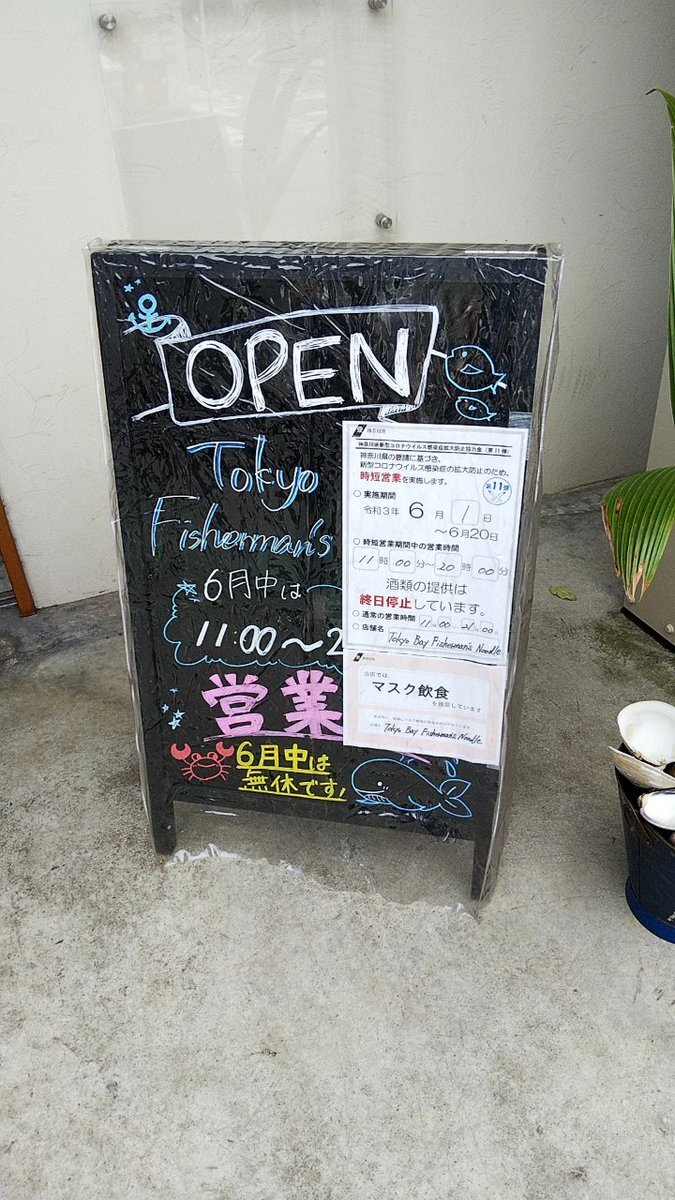 OPEN
Tokyo
Fisherman's
6月中は
11:00～2
営業
6月中は
無休です!
神奈川県
神奈川県新型コロナウイルス感染症拡大防止協力金（第11弾）
神奈川県の要請に基づき、
新型コロナウイルス感染症の拡大防止のため、
時短営業を実施します。
第11弾
○実施期間
令和3年 6月1日
～6月20日
○時短営業期間中の営業時間
11時00分～20時00分
酒類の提供は
終日停止しています。
○通常の営業時間 11:00-21:00
○店舗名 Tokyo Bay Fisherman's Noodle
当店では
マスク飲食
を推奨しています
Tokyo Bay Fisherman's Noodle